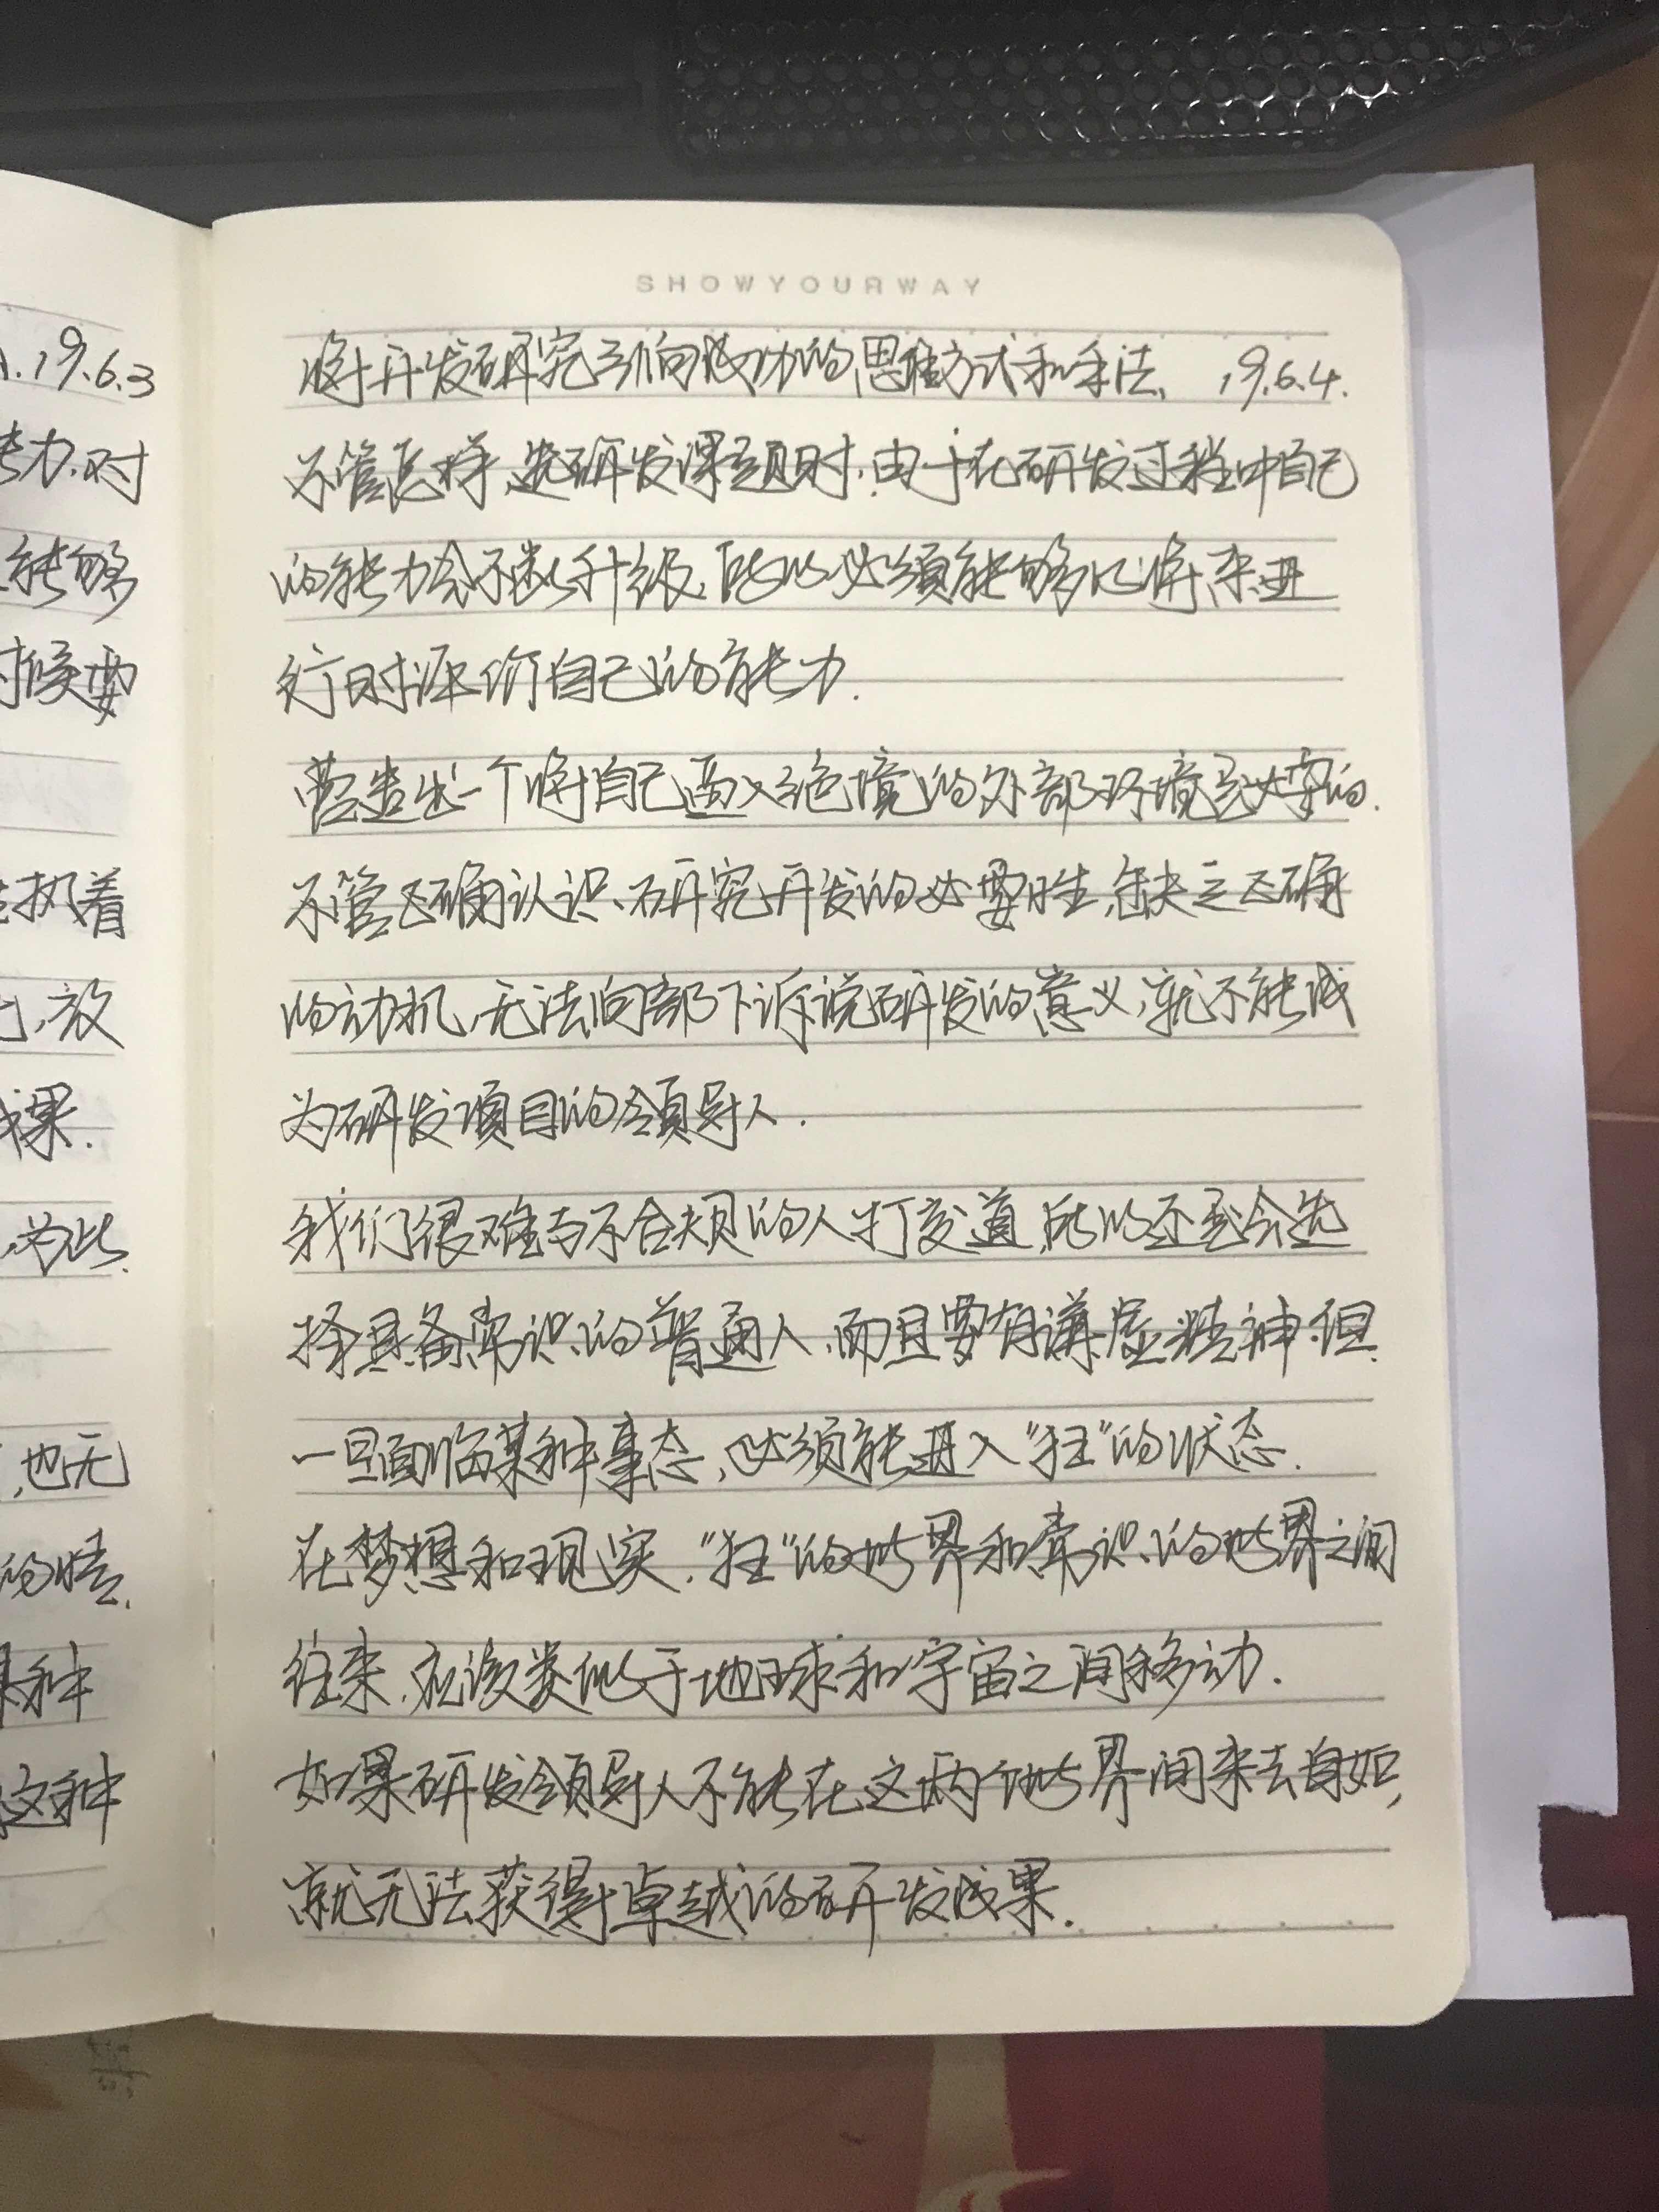 SHOWYOURWAY
将开发研究引向成功的思维方式和手法、 19.6.4.
不管怎样,选研发课题时,由于在研发过程中自己
的能力会不断升级,所以必须能够以将来进
行时评价自己的能力.
营造出一个将自己逼入绝境的外部环境至关重要的.
不管正确认识、研究开发的必要性,缺乏正确
的动机,无法向部下诉说研发的意义,就不能成
为研发项目的领导人.
我们很难与不合规的人打交道,所以还是会选
择具备常识的普通人,而且要有谦虚精神.但
一旦面临某种事态,必须能进入“狂”的状态.
在梦想和现实.“狂”的世界和常识的世界之间
往来,应该类似于地球和宇宙之间移动.
如果研发领导人不能在这两个世界间来去自如,
就无法获得卓越的研发成果.
19.6.3
力.对
能够
时候要
执着
,放
果.
,为此
,也无
的情
种
这种